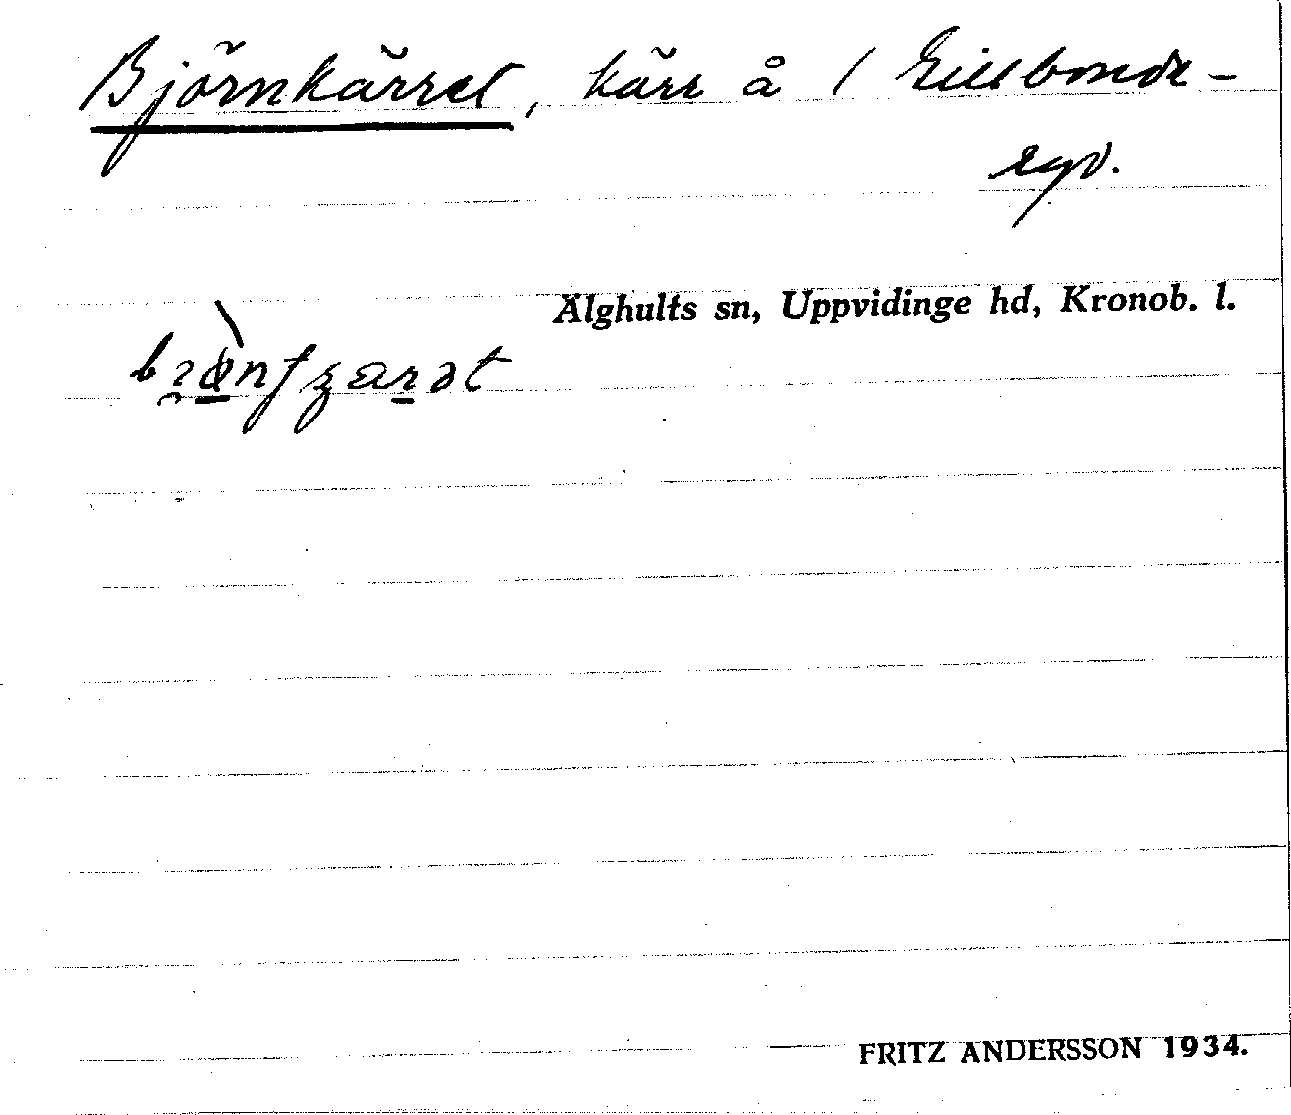 Björnkärret, kärr å / Lillbonde-
ryd.
Älghults sn, Uppvidinge hd, Kronob. l.
FRITZ ANDERSSON 1934.